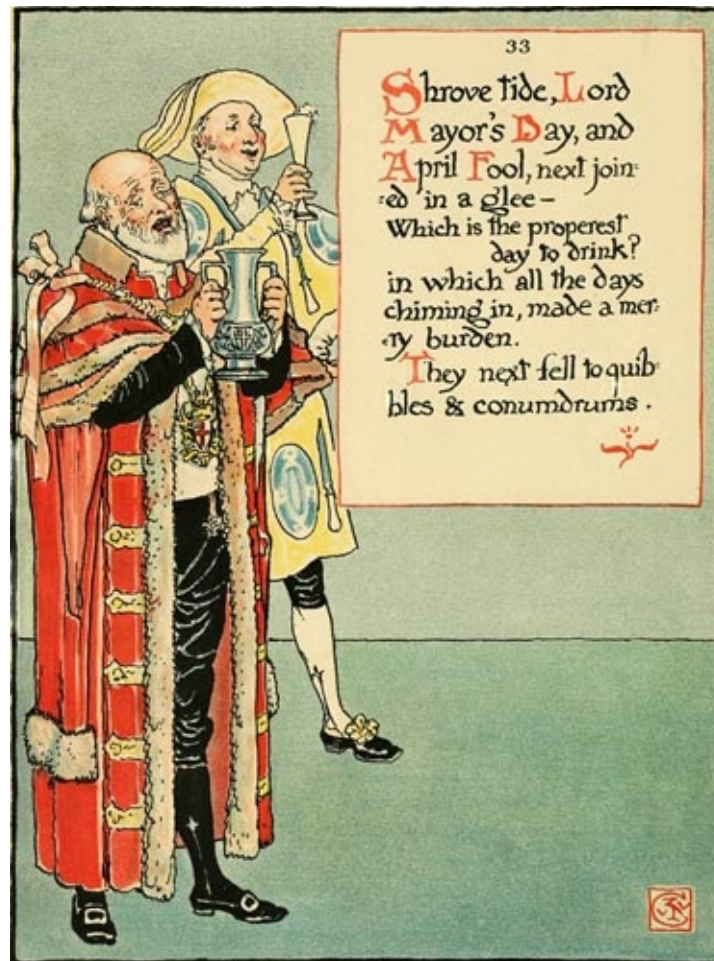 33
Shrove tide, Lord
Mayor's Day, and
April Fool, next join-
-ed in a glee –
Which is the properest
day to drink?
in which all the days
chiming in, made a mer-
-ry burden.
They next fell to quib-
bles & conumdrums.